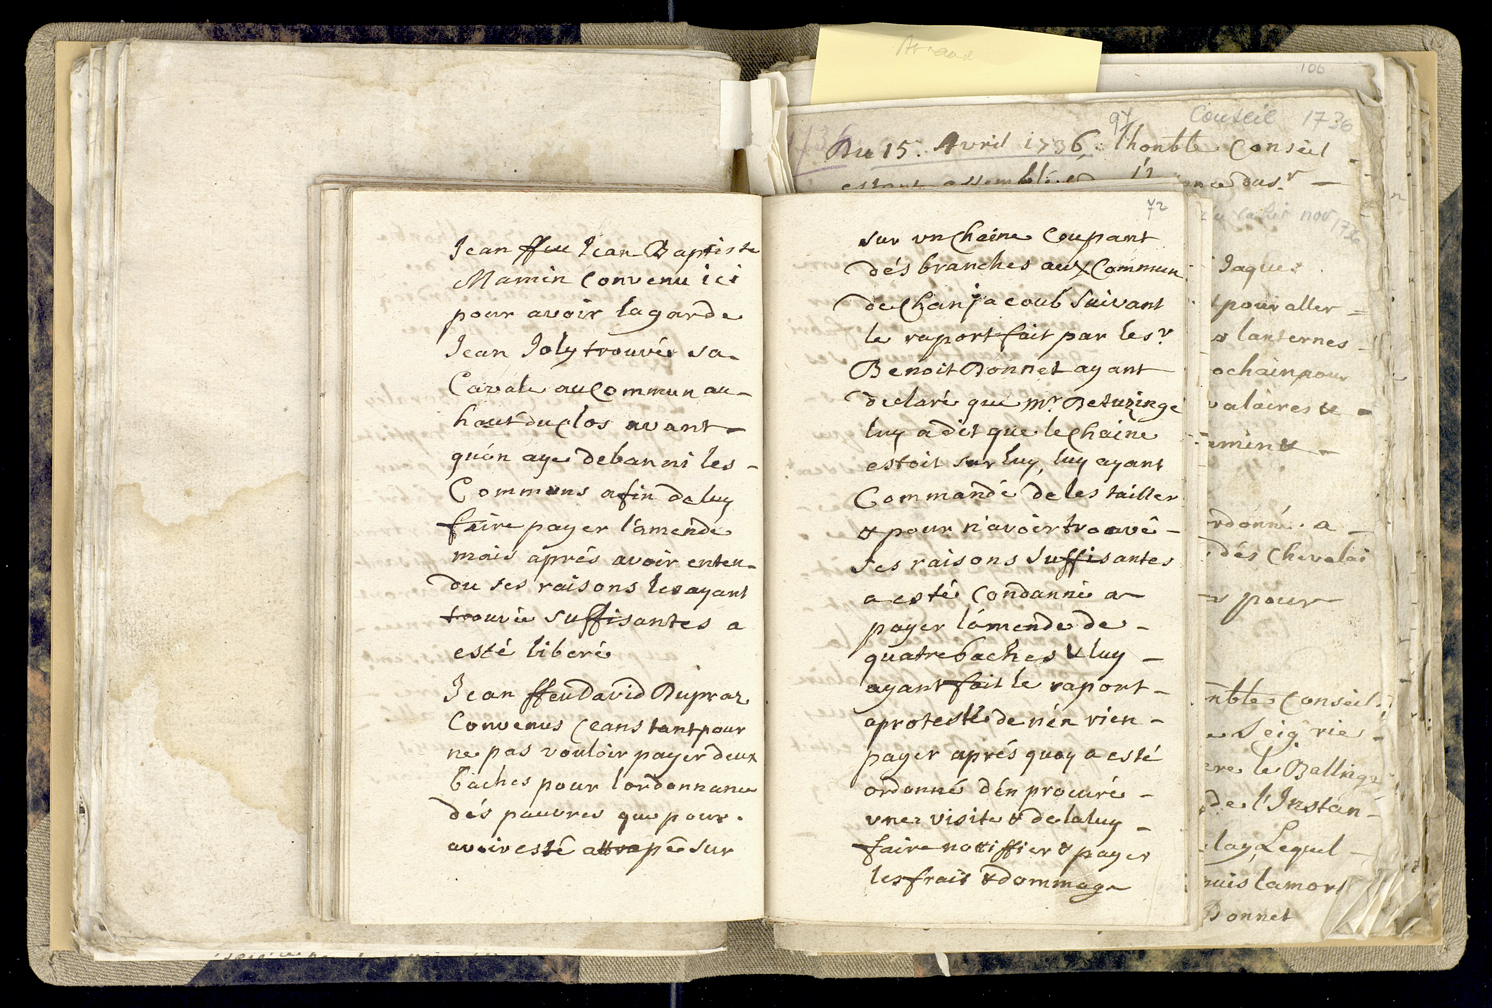 Jean ffeu Jean Baptiste
Mamin Convenu ici
pour avoir la garde
Jean Joly trouvér sa
Cavale au Commun au-
haut du Clos avant
qu'on aye debanni les
Communs afin de luy
faire payer l'amende
mais aprés avoir enten-
du ses raisons les ayant
trouvée suffisantes a
esté liberé
Jean ffeu David Dupraz
Convenus Ceans tant pour
ne pas vouloir payer deux
baches pour l'ordonnance
dés pauvres que pour
avoir esté attrapée sur
72
sur vn Chaine Coupant
dés branches aux Commun
de Chanjacoub Suivant
le raport fait par le sr
Benoit Bonnet ayant
declaré que mr DeTuzinge
luy a dit que le Chaine
estoit sur luy, luy ayant
Commandé de les tailler
& pour n'avoir trouvé
ses raisons suffisantes
a esté Condanné a
payer lámende de
quatre baches & luy
ayant fait le raport
a protesté de n'én rien
payer aprés quoy a esté
ordonné d'én procuré
vne visite & de la luy
faire nottiffier & payer
les frais & dommage
Arnaud
106
97
Conseil 1736
Du 15. Avril 1736. lhonble Conseil
nov 1736
Jaques
pour aller
lanternes
ochain pour
valaires &
ordonné a
dés Chevalai
pour
nble Conseil
Seigrie
le Balling
de l'Instan
Lequel
puis lamort
Bonnet